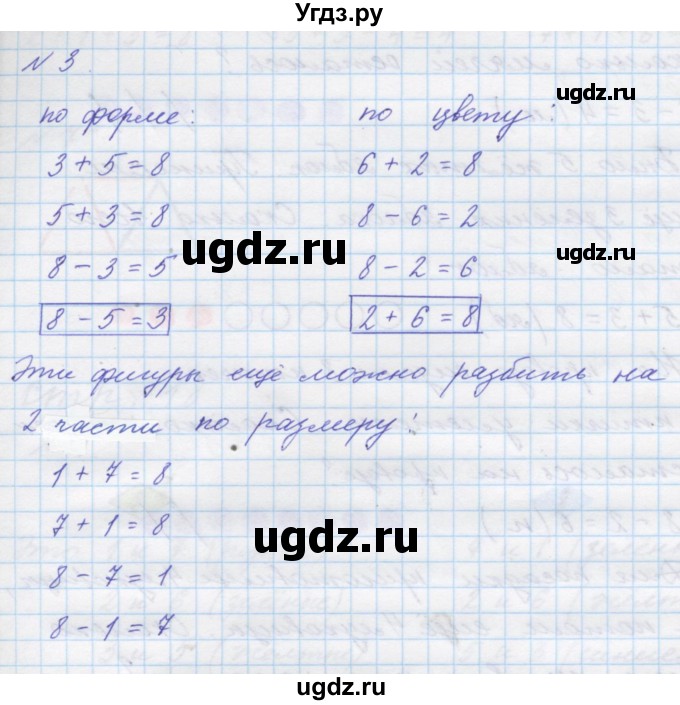 Угдз.ру
N 3.
по форме:
3 + 5 = 8
5 + 3 = 8
8 - 3 = 5
8 - 5 = 3
по цвету:
6 + 2 = 8
8 - 6 = 2
8 - 2 = 6
2 + 6 = 8
Эти фигуры ещё можно разбить на
2 части по размеру:
1 + 7 = 8
7 + 1 = 8
8 - 7 = 1
8 - 1 = 7
ugdz.ru
ugdz.ru
ugdz.ru
ugdz.ru
ugdz.ru
ugdz.ru
ugdz.ru